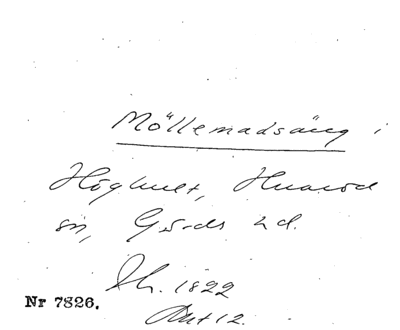 Möllemadsäng i
Höghult, Huaröd
sn, Gärds hd.
Lh. 1822
Akt 12.
Nr 7826.